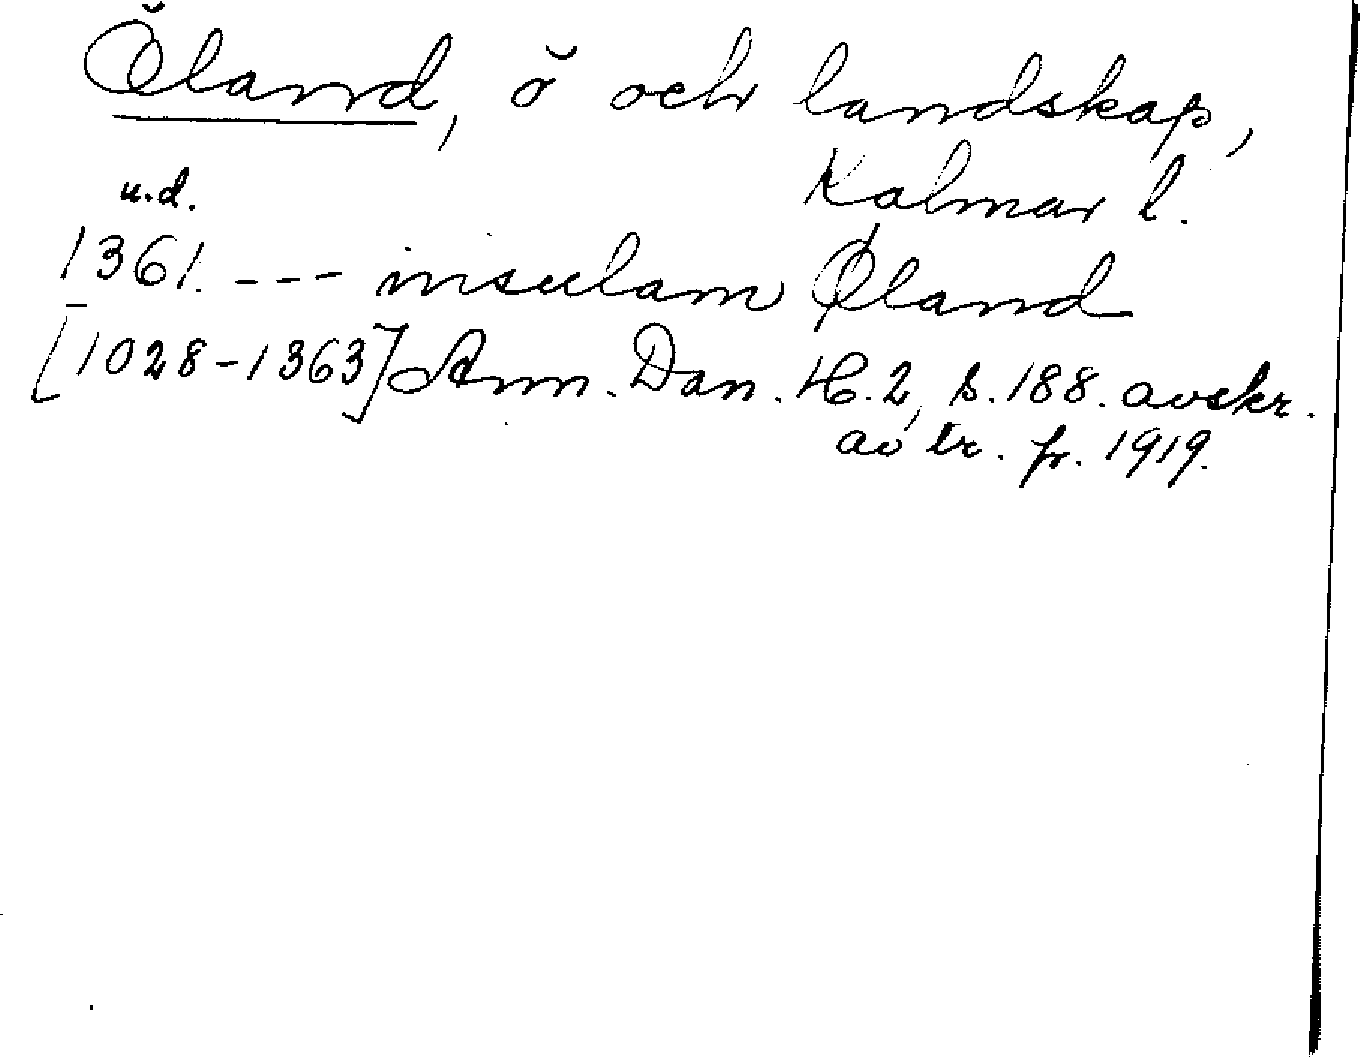 Öland, ö och landskap,
Kalmar l.
u.d.
1361. --- insulam Øland
[1028-1363] Ann. Dan. H. 2, s. 188. avskr.
av tr. fr. 1919.